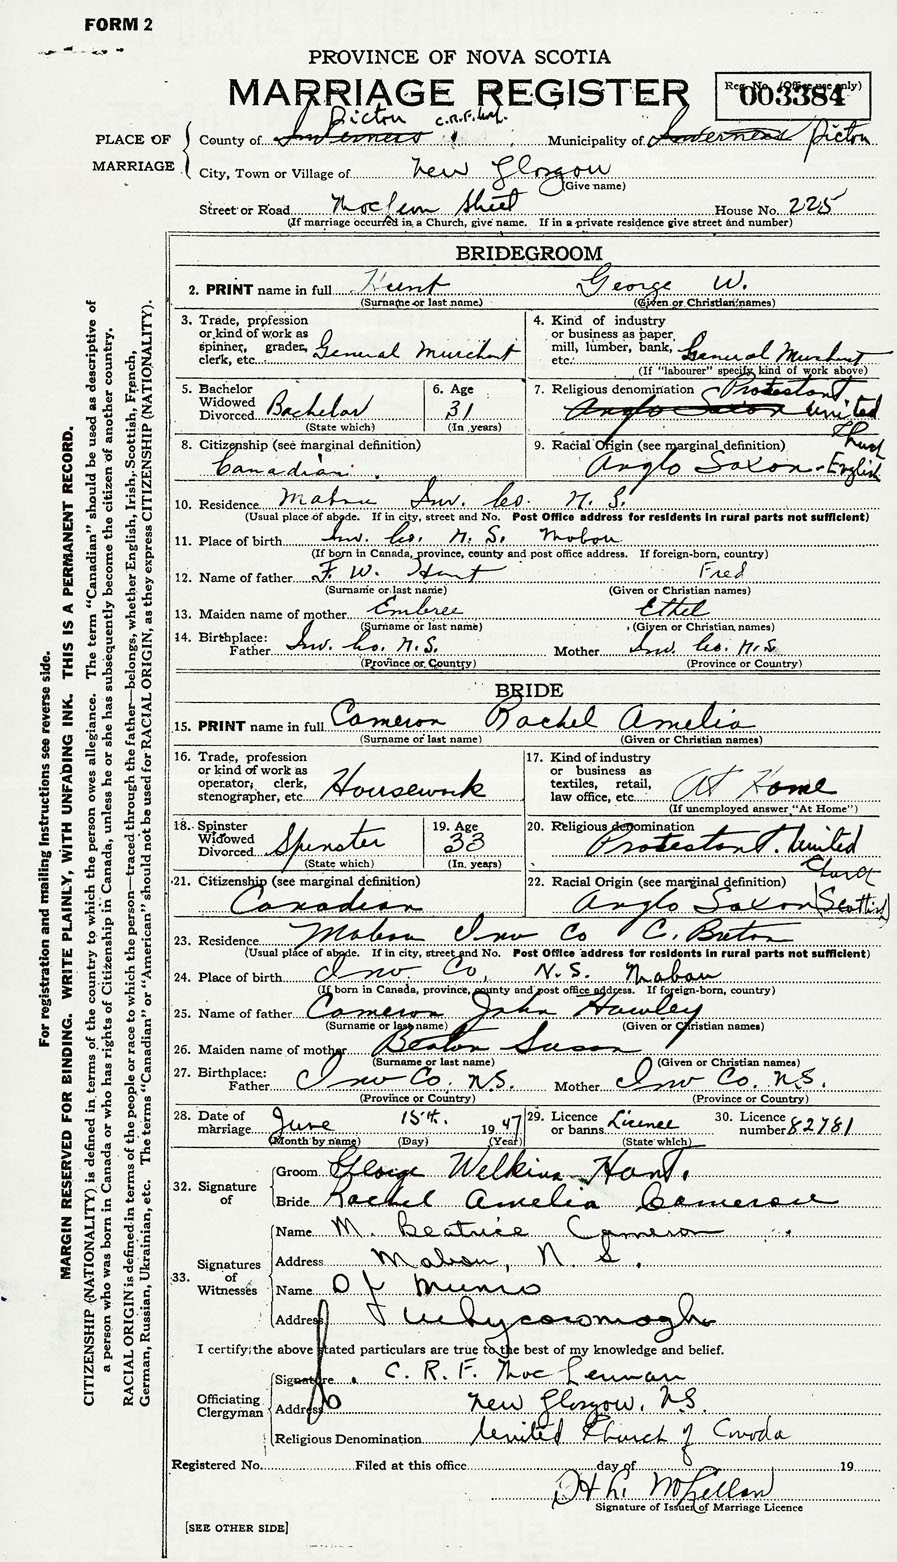 FORM 2
PROVINCE OF NOVA SCOTIA
MARRIAGE REGISTER
Reg. No. (Office use only)
003384
Pictou C.R.F. McL.
PLACE OF MARRIAGE
County of Inverness Municipality of Inverness Pictou
City, Town or Village of New Glasgow
(Give name)
Street or Road MacLean Street House No. 225
(If marriage occurred in a Church, give name. If in a private residence give street and number)
BRIDEGROOM
2. PRINT name in full Hunt George W.
(Surname or last name) (Given or Christian names)
3. Trade, profession or kind of work as spinner, grader, clerk, etc. General Merchant
4. Kind of industry or business as paper mill, lumber, bank, etc. General Merchant
(If "labourer" specify kind of work above)
5. Bachelor Widowed Divorced Bachelor
(State which)
6. Age 31
(In years)
7. Religious denomination Protestant
Anglo Saxon United Church
8. Citizenship (see marginal definition)
Canadian
9. Racial Origin (see marginal definition)
Anglo Saxon - English
10. Residence Mabou Inv. Co. N. S.
(Usual place of abode. If in city, street and No. Post Office address for residents in rural parts not sufficient)
11. Place of birth Inv. Co. N. S. Mabou
(If born in Canada, province, county and post office address. If foreign-born, country)
12. Name of father F. W. Hunt Fred
(Surname or last name) (Given or Christian names)
13. Maiden name of mother Embree Ethel
(Surname or last name) (Given or Christian names)
14. Birthplace: Father Inv. Co. N.S. Mother Inv. Co. N.S.
(Province or Country) (Province or Country)
BRIDE
15. PRINT name in full Cameron Rachel Amelia
(Surname or last name) (Given or Christian names)
16. Trade, profession or kind of work as operator, clerk, stenographer, etc. Housework
17. Kind of industry or business as textiles, retail, law office, etc. At Home
(If unemployed answer "At Home")
18. Spinster Widowed Divorced Spinster
(State which)
19. Age 33
(In years)
20. Religious denomination
Protestant. United Church
21. Citizenship (see marginal definition)
Canadian
22. Racial Origin (see marginal definition)
Anglo Saxon (Scottish)
23. Residence Mabou Inv Co C. Breton
(Usual place of abode. If in city, street and No. Post Office address for residents in rural parts not sufficient)
24. Place of birth Inv Co, N.S. Mabou
(If born in Canada, province, county and post office address. If foreign-born, country)
25. Name of father Cameron John Hawley
(Surname or last name) (Given or Christian names)
26. Maiden name of mother Beaton Susan
(Surname or last name) (Given or Christian names)
27. Birthplace: Father Inv Co. N.S. Mother Inv Co. N.S.
(Province or Country) (Province or Country)
28. Date of marriage June 15th. 1947
(Month by name) (Day) (Year)
29. Licence or banns Licence
(State which)
30. Licence number 82781
32. Signature of
Groom George Wilkins Hunt.
Bride Rachel Amelia Cameron
33. Signatures of Witnesses
Name M. Beatrice Cameron
Address Mabou, N. S.
Name D J Munro
Address Whycocomagh
I certify the above stated particulars are true to the best of my knowledge and belief.
Officiating Clergyman
Signature C. R. F. MacLennan
Address New Glasgow, N.S.
Religious Denomination United Church of Canada
Registered No. Filed at this office day of 19
Signature of Issuer of Marriage Licence
[SEE OTHER SIDE]
For registration and mailing instructions see reverse side.
MARGIN RESERVED FOR BINDING. WRITE PLAINLY, WITH UNFADING INK. THIS IS A PERMANENT RECORD.
CITIZENSHIP (NATIONALITY) is defined in terms of the country to which the person owes allegiance. The term "Canadian" should be used as descriptive of
a person who was born in Canada or who has rights of Citizenship in Canada, unless he or she has subsequently become the citizen of another country.
RACIAL ORIGIN is defined in terms of the people or race to which the person—traced through the father—belongs, whether English, Irish, Scottish, French,
German, Russian, Ukrainian, etc. The terms "Canadian" or "American" should not be used for RACIAL ORIGIN, as they express CITIZENSHIP (NATIONALITY).